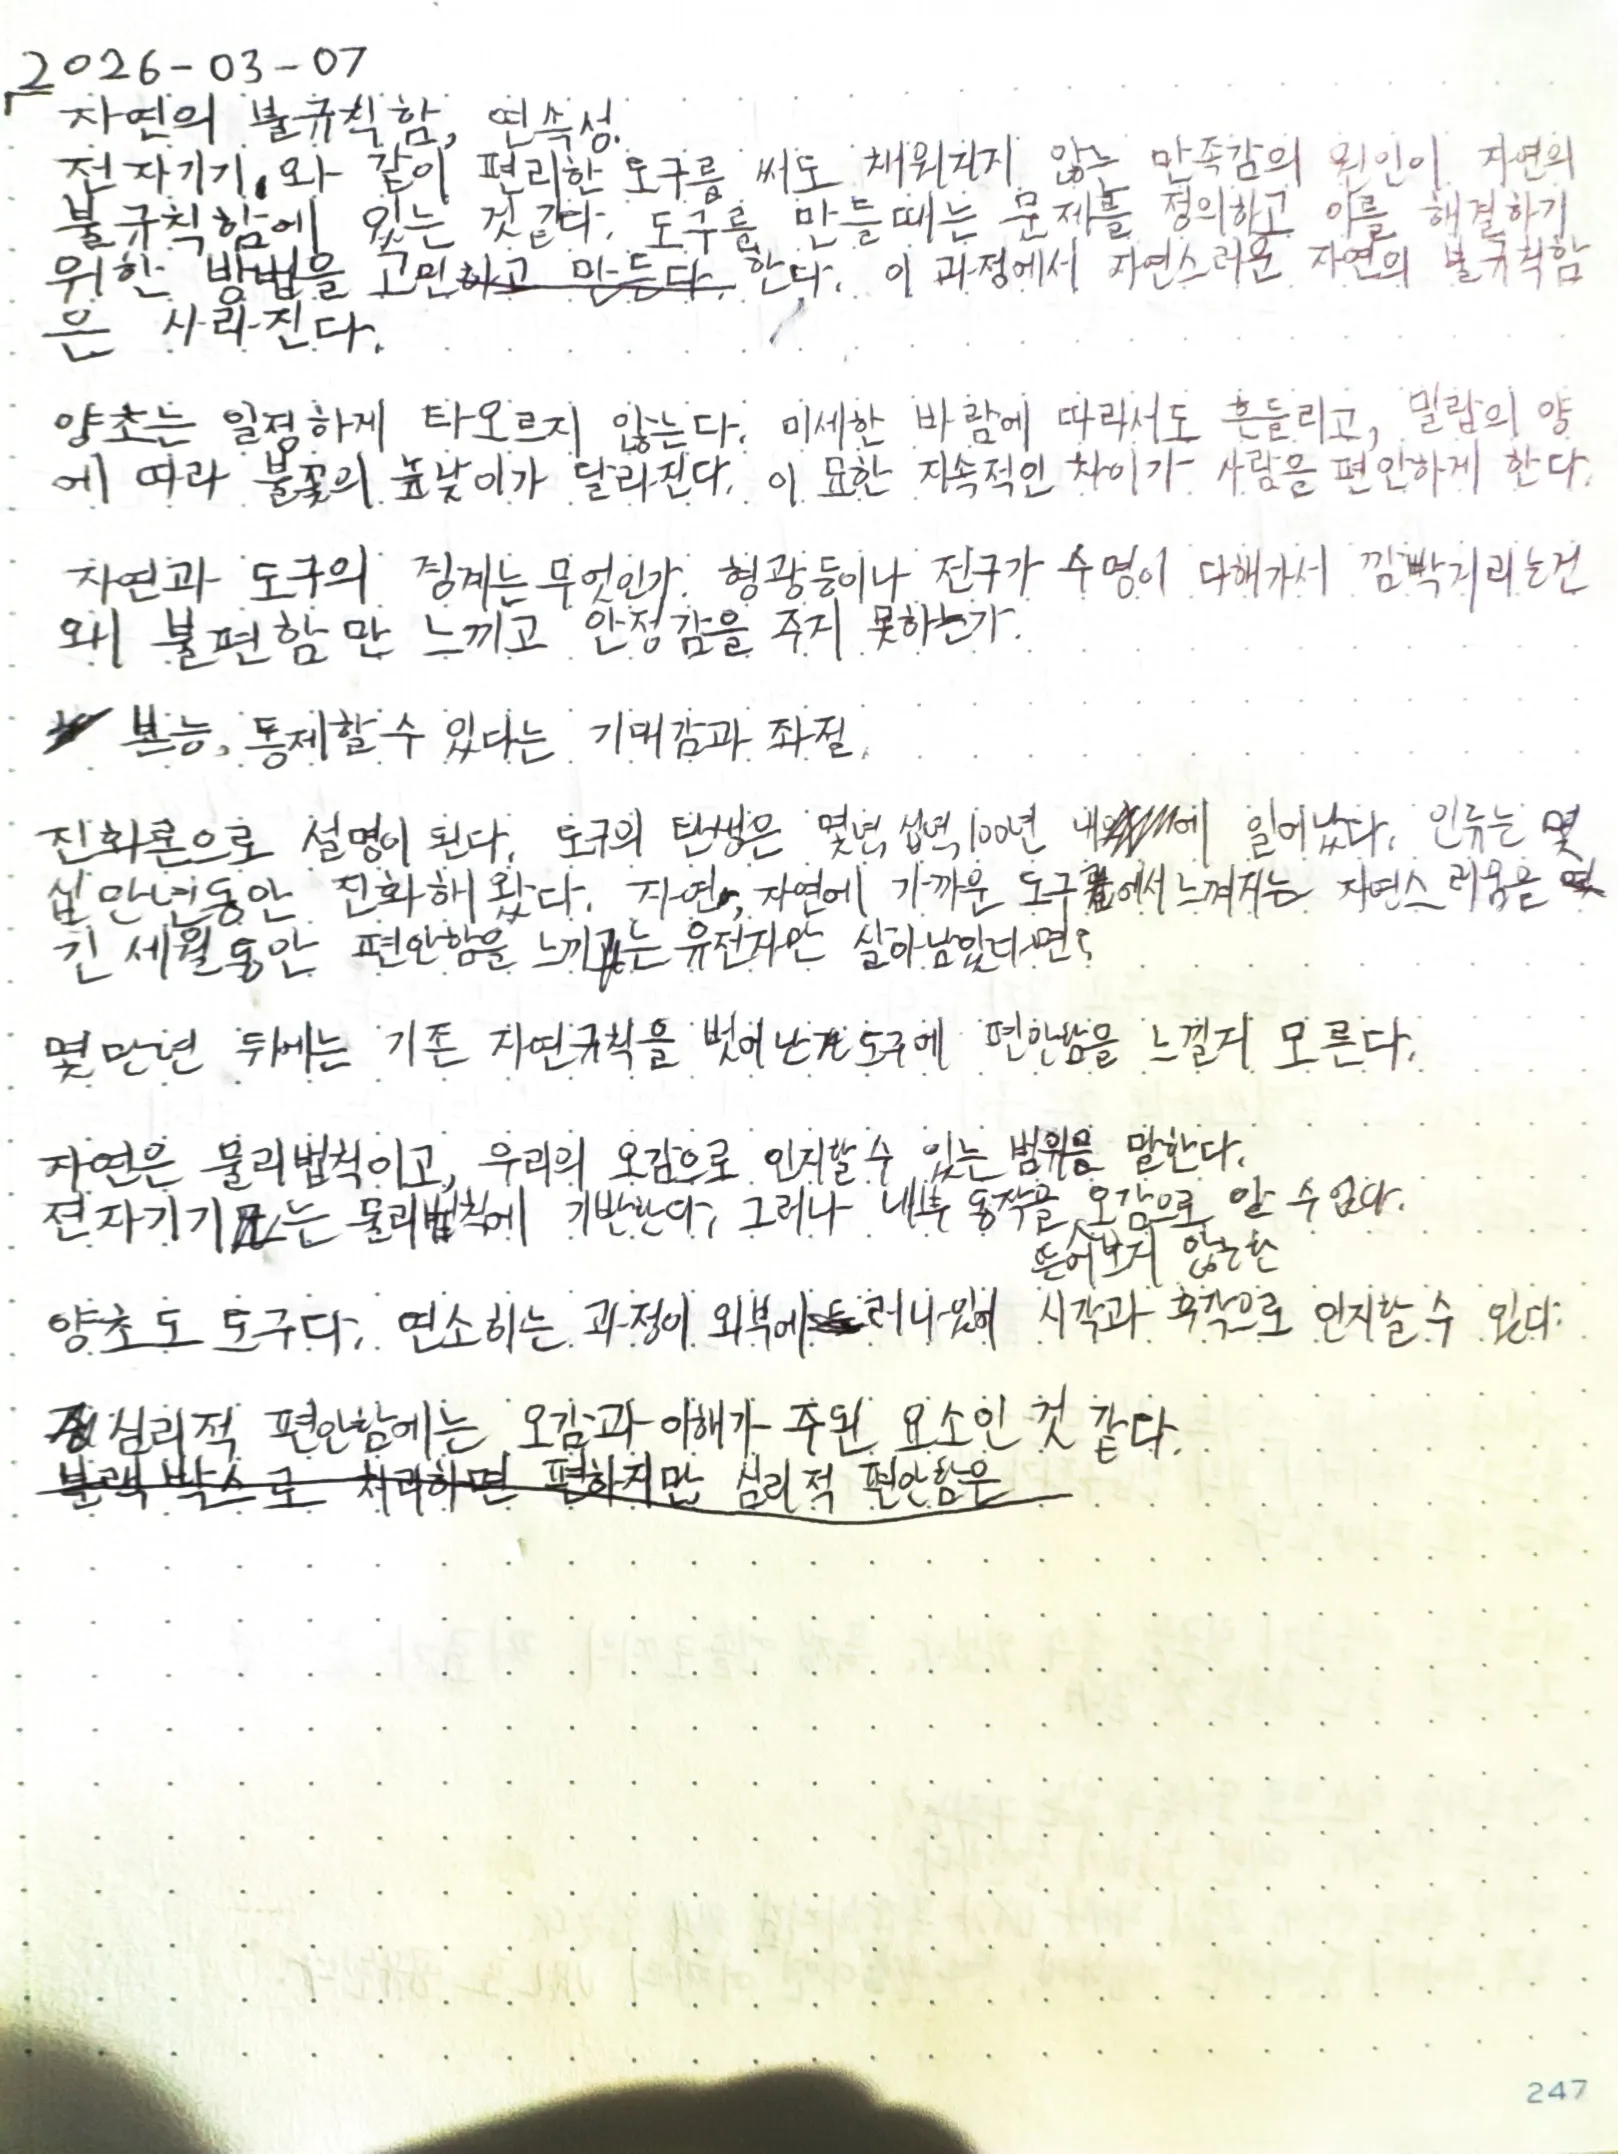 2026-03-07
자연의 불규칙함, 연속성.
전자기기와 같이 편리한 도구를 써도 채워지지 않는 만족감의 원인이 자연의
불규칙함에 있는 것 같다. 도구를 만들때는 문제를 정의하고 이를 해결하기
위한 방법을 고민하고 만든다. 한다. 이 과정에서 자연스러운 자연의 불규칙함
은 사라진다.
양초는 일정하게 타오르지 않는다. 미세한 바람에 따라서도 흔들리고, 밀랍의 양
에 따라 불꽃의 높낮이가 달라진다. 이 묘한 지속적인 차이가 사람을 편안하게 한다.
자연과 도구의 경계는 무엇인가. 형광등이나 전구가 수명이 다해가서 깜빡거리는건
왜 불편함만 느끼고 안정감을 주지 못하는가.
본능, 통제할 수 있다는 기대감과 좌절.
진화론으로 설명이 된다. 도구의 탄생은 몇년, 십년, 100년 내에 일어났다. 인류는 몇
십만년동안 진화해왔다. 자연, 자연에 가까운 도구에서 느껴지는 자연스러움을
긴 세월동안 편안함을 느끼는 유전자만 살아남았다면?
몇만년 뒤에는 기존 자연규칙을 벗어난 도구에 편안함을 느낄지 모른다.
자연은 물리법칙이고, 우리의 오감으로 인지할 수 있는 범위를 말한다.
전자기기는 물리법칙에 기반한다. 그러나 내부 동작을 오감으로 알 수 없다.
뜯어보지 않는한
양초도 도구다. 연소하는 과정이 외부에 드러나있어 시각과 촉각으로 인지할 수 있다.
심리적 편안함에는 오감과 이해가 주된 요소인 것 같다.
블랙박스로 처리하면 편하지만 심리적 편안함은
247